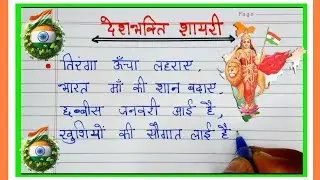 Page
देशभक्ति शायरी
तिरंगा ऊँचा लहराए,
भारत माँ की शान बढ़ाए,
छब्बीस जनवरी आई है,
खुशियों की सौगात लाई है